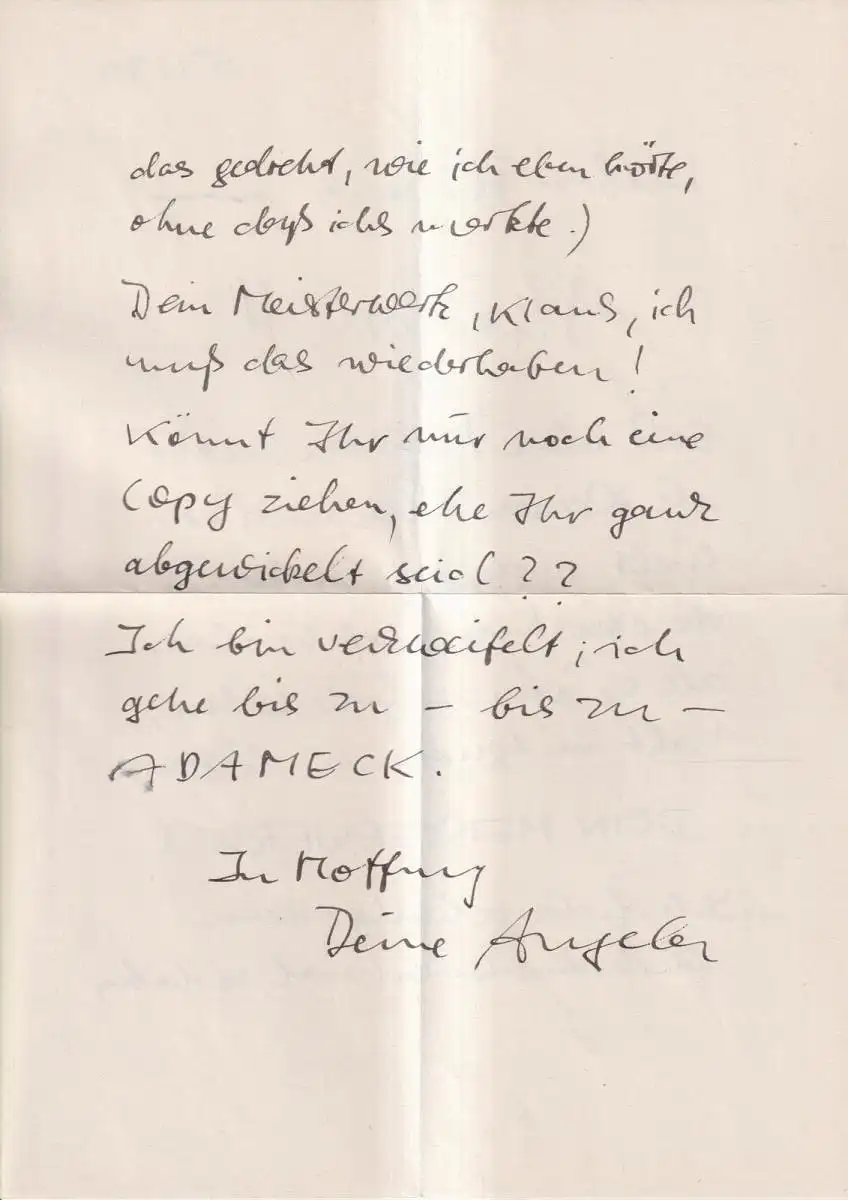 das gedreht, wie ich eben hörte,
ohne daß ichs merkte.)
Dein Meisterwerk, Klaus, ich
muß das wiederhaben!
Könnt Ihr mir noch eine
Copy ziehen, ehe Ihr ganz
abgewickelt seid??
Ich bin verzweifelt; ich
gehe bis zu – bis zu –
ADAMECK.
In Hoffnung
Deine